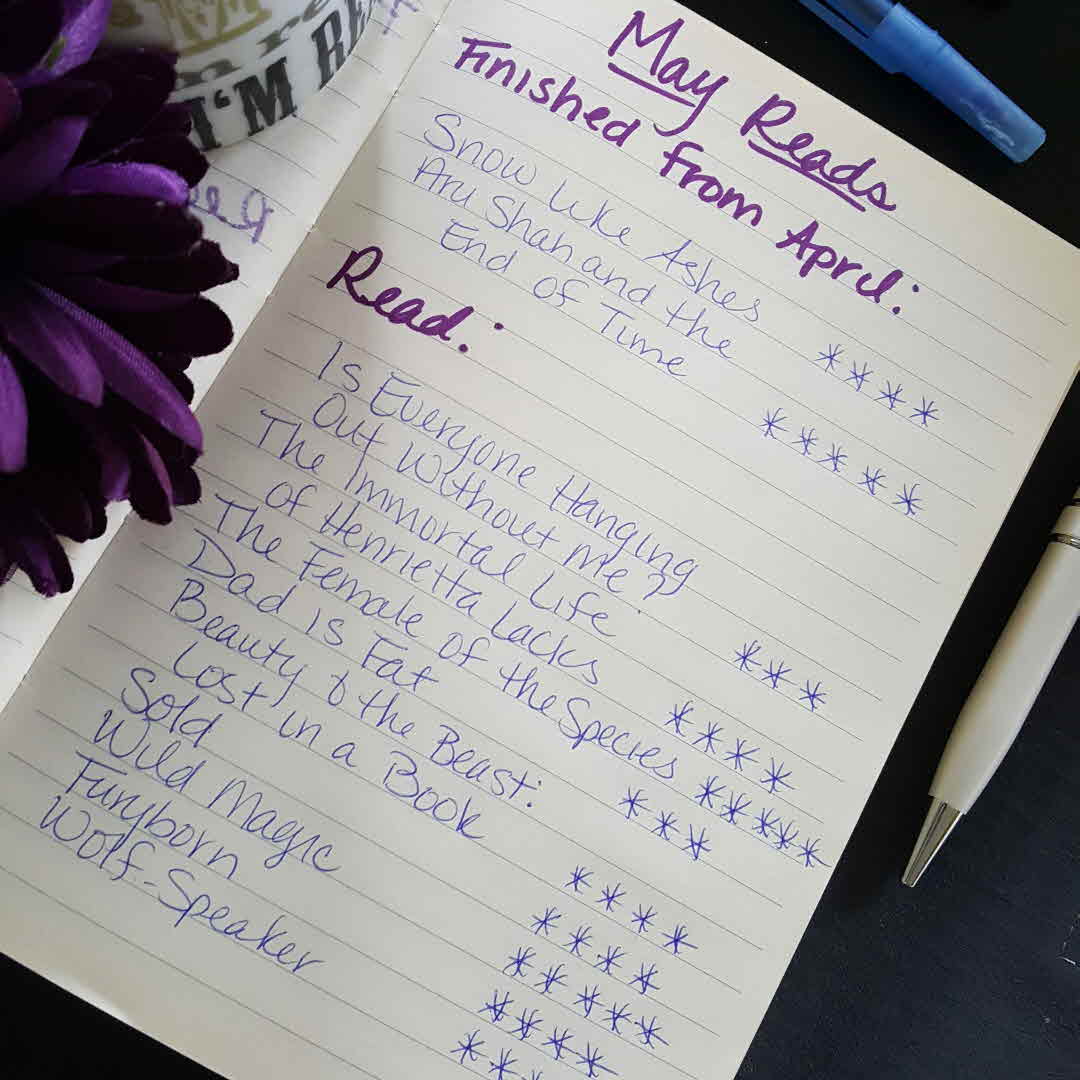 I'M
May Reads
Finished From April:
Snow Like Ashes ****
Aru Shah and the
End of Time *****
Read:
Is Everyone Hanging
Out Without me? ***
The Immortal Life
of Henrietta Lacks ****
The Female of the Species *****
Dad is Fat ***
Beauty & the Beast:
Lost in a Book ****
Sold ****
Wild Magic *****
Furyborn ****
Wolf-Speaker ***